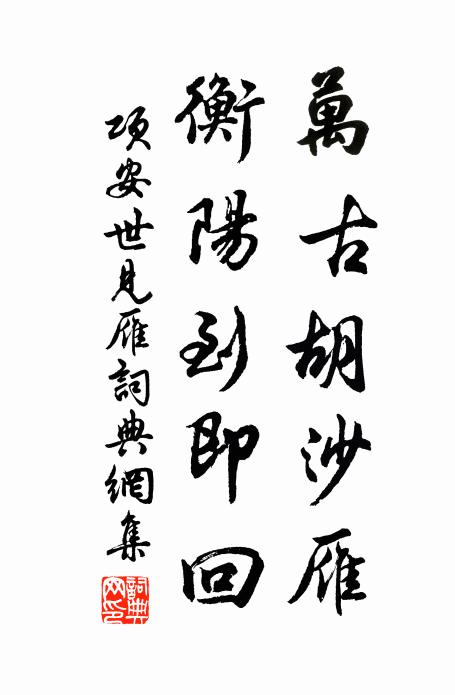 萬古胡沙雁
衡陽到即回
項安世見雁詞典網集
詞典网印